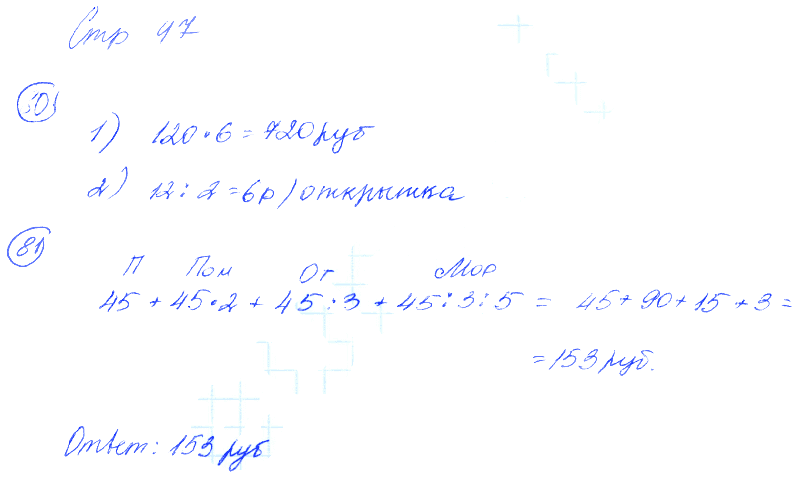 Стр 47
80
1) 120 • 6 = 720 руб
2) 12 : 2 = 6р / открытка
81
П Пом Ог Мор
45 + 45 • 2 + 45 : 3 + 45 : 3 : 5 = 45 + 90 + 15 + 3 =
= 153 руб.
Ответ: 153 руб